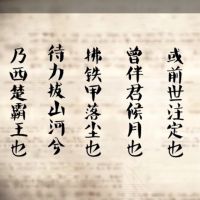 或前世注定也
曾伴君候月也
拂铁甲落尘也
待力拔山河兮
乃西楚霸王也